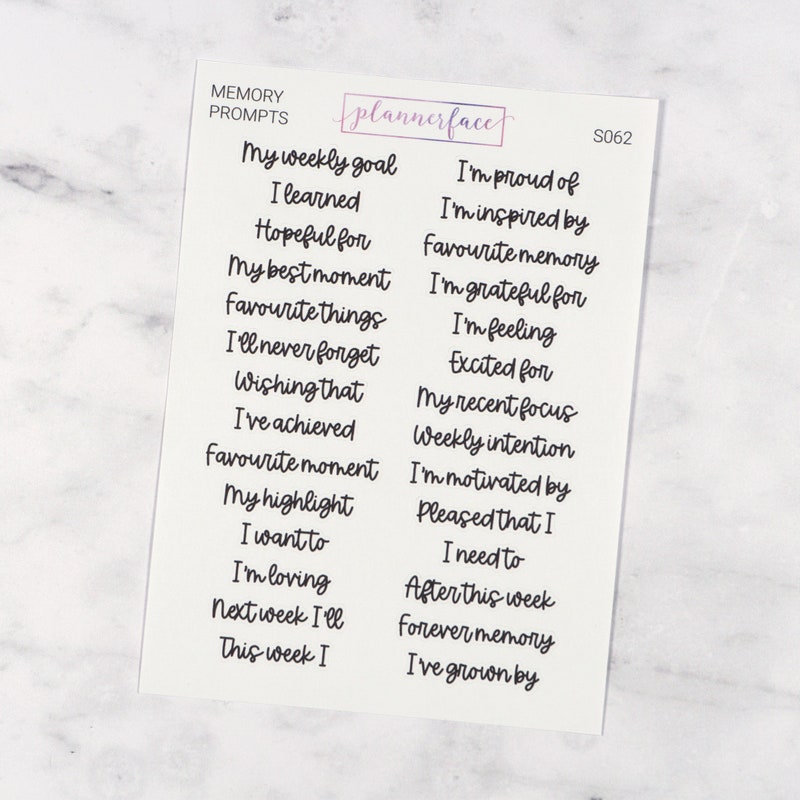 MEMORY
PROMPTS
plannerface
S062
My weekly goal
I learned
Hopeful for
My best moment
Favourite things
I'll never forget
Wishing that
I've achieved
Favourite moment
My highlight
I want to
I'm loving
Next week I'll
This week I
I'm proud of
I'm inspired by
Favourite memory
I'm grateful for
I'm feeling
Excited for
My recent focus
Weekly intention
I'm motivated by
Pleased that I
I need to
After this week
Forever memory
I've grown by